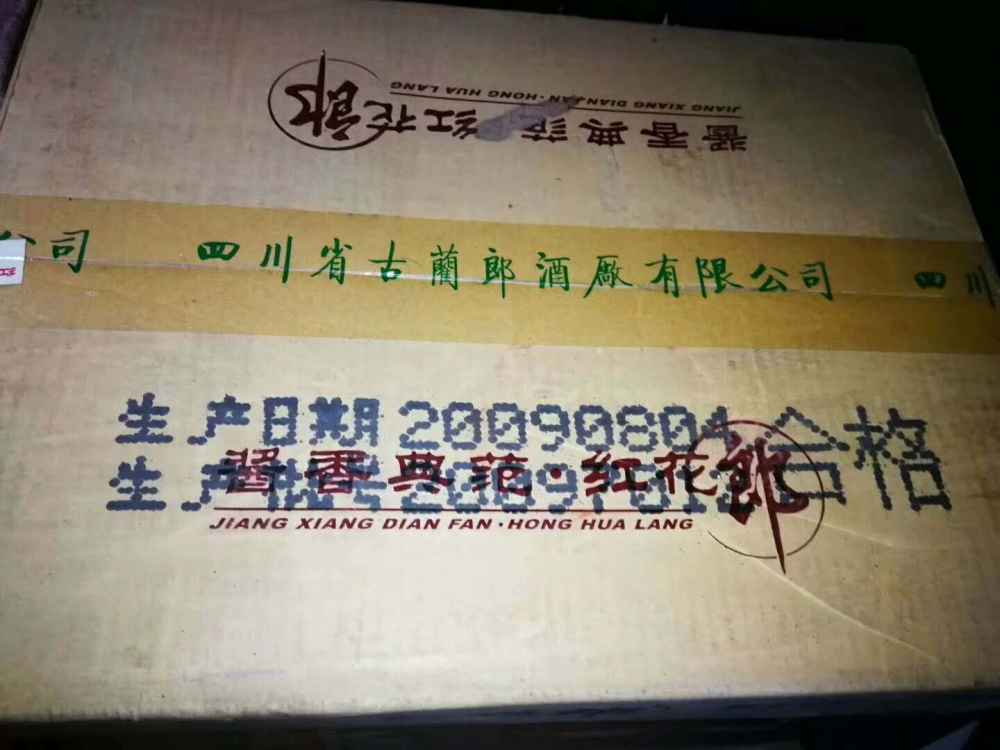 JIANG XIANG DIAN FAN·HONG HUA LANG
酱香典范·红花郎
公司 四川省古藺郎酒厰有限公司 四川
生产日期20090804合格
生产批号
酱香典范·红花郎
JIANG XIANG DIAN FAN·HONG HUA LANG